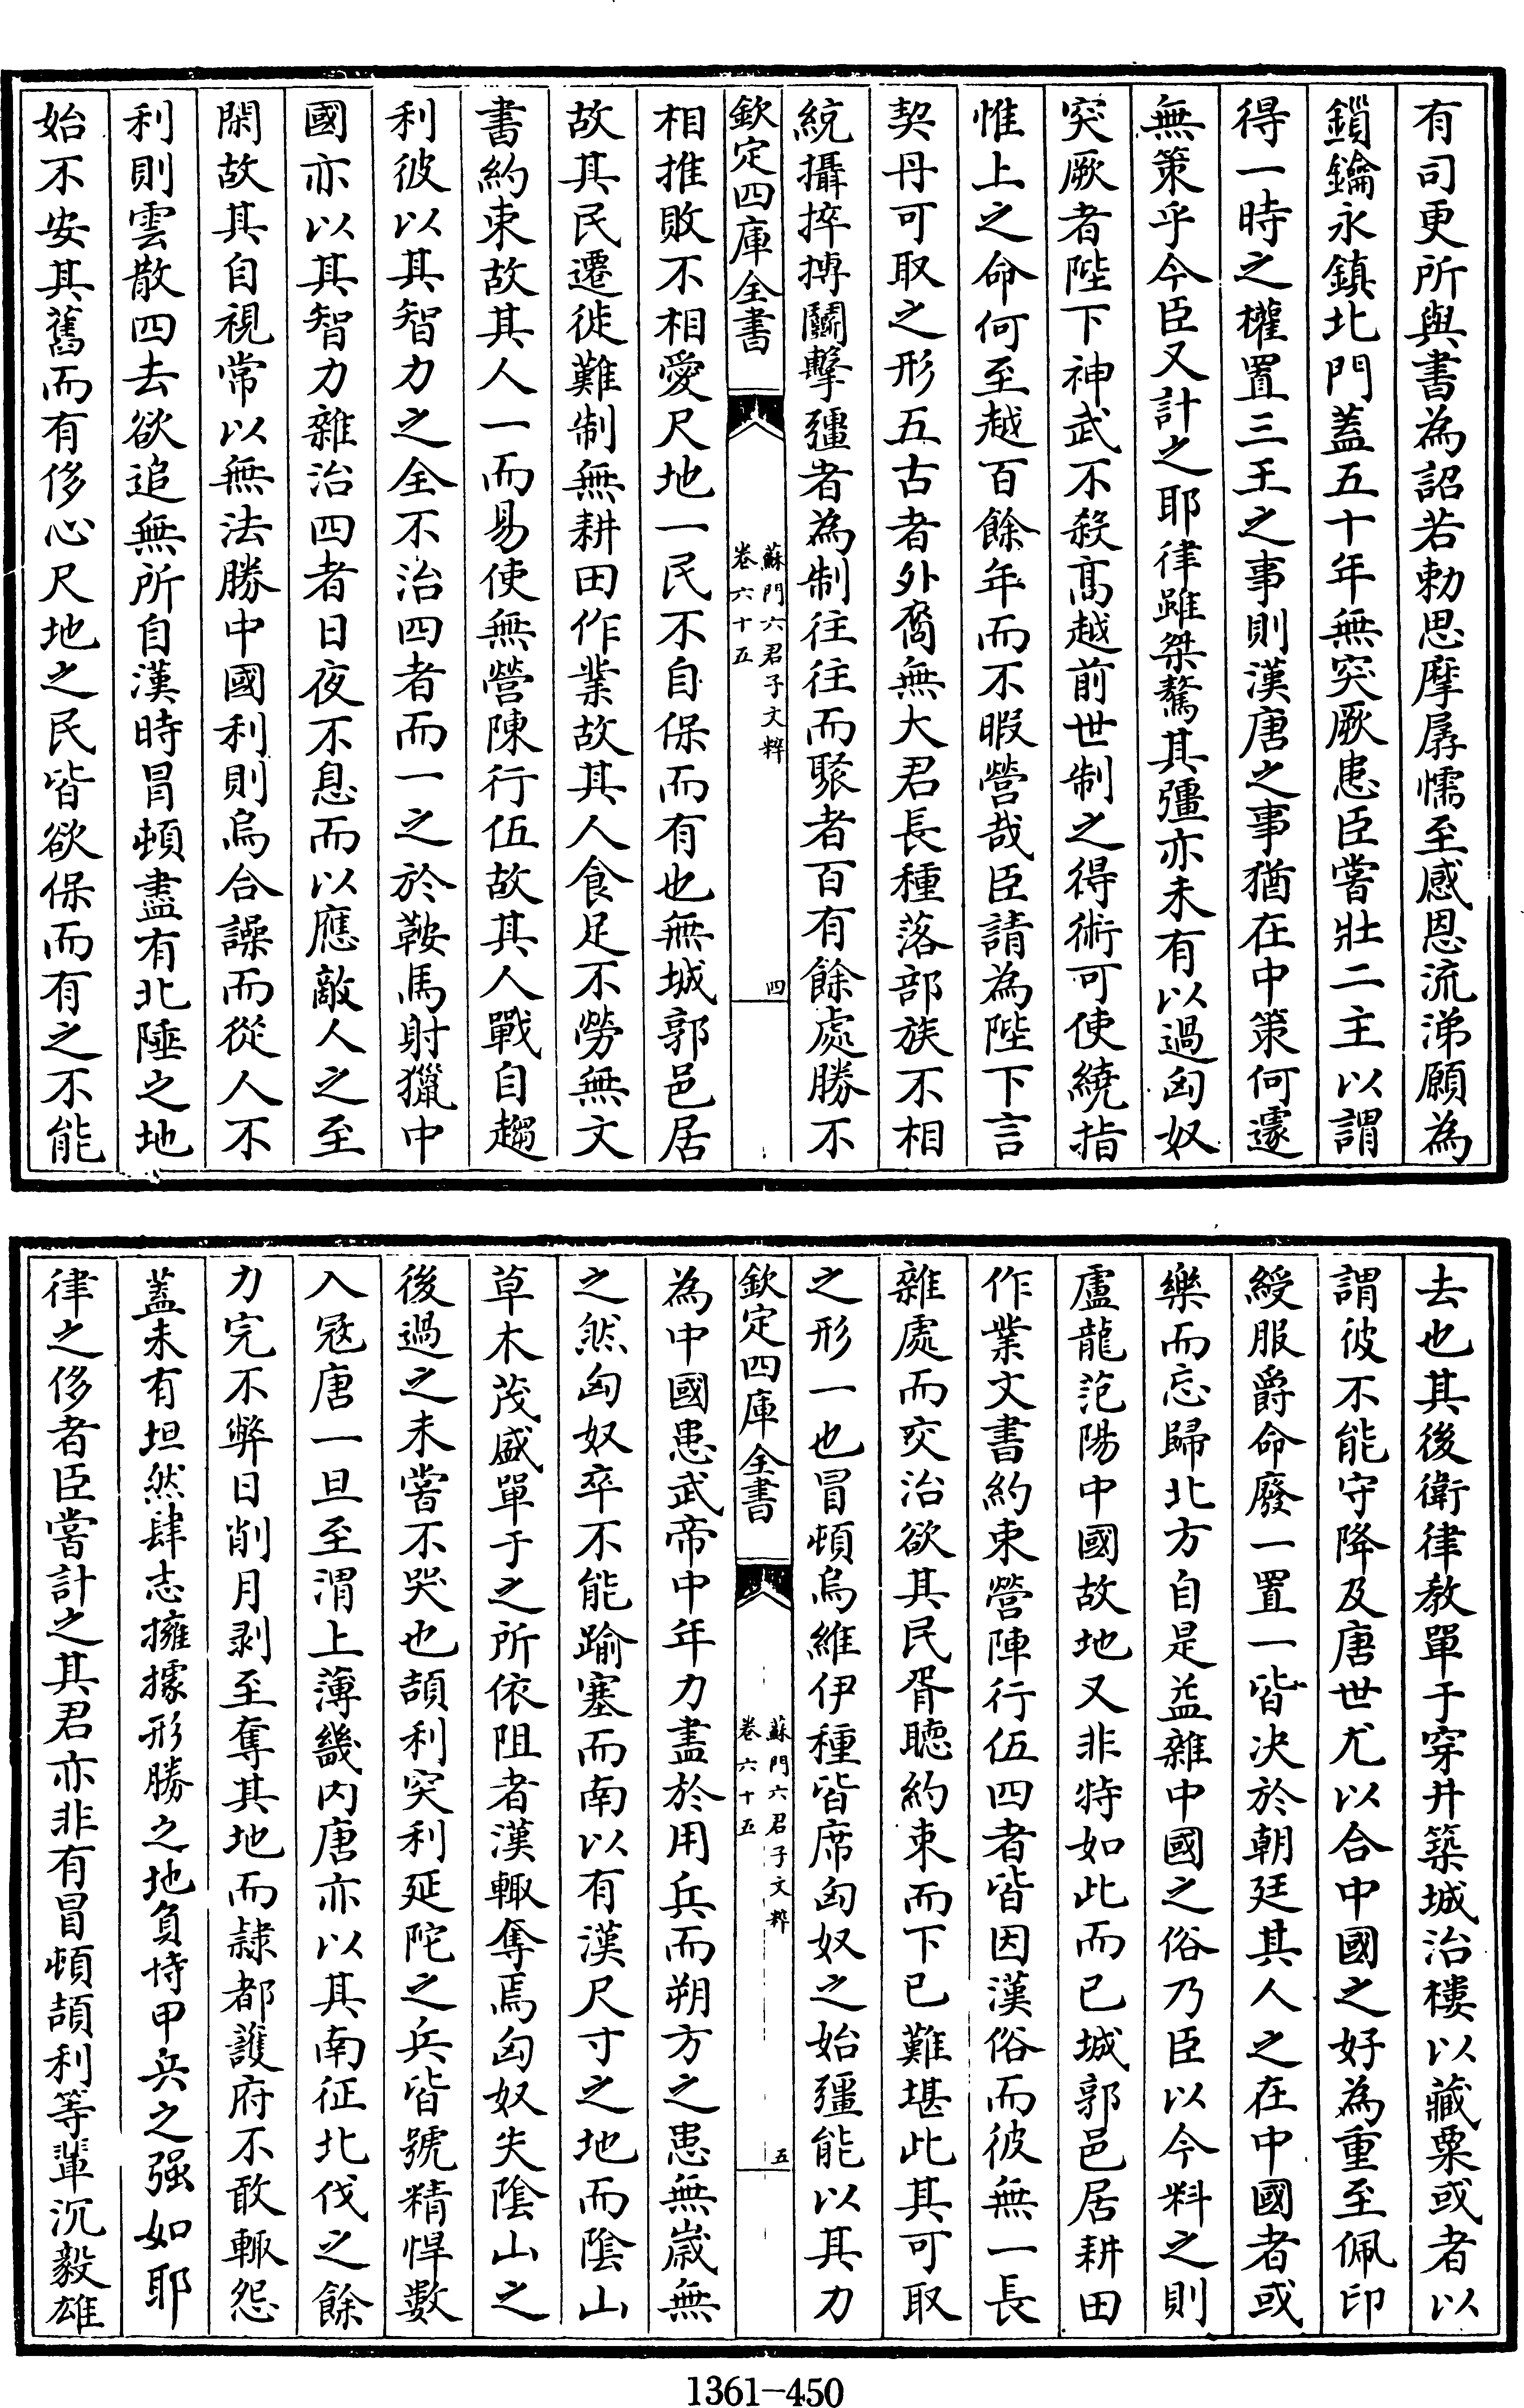 有司更所與書為詔若勅思摩孱懦至感恩流涕願為
鎖鑰永鎮北門蓋五十年無突厥患臣嘗壯二主以謂
得一時之權置三王之事則漢唐之事猶在中策何遽
無策乎今臣又計之耶律雖桀驁其彊亦未有以過匈奴
突厥者陛下神武不殺髙越前世制之得術可使繞指
惟上之命何至越百餘年而不暇營哉臣請為陛下言
契丹可取之形五古者外裔無大君長種落部族不相
統攝捽搏鬭擊彊者為制往往而聚者百有餘處勝不
欽定四庫全書
蘇門六君子文粹
卷六十五
四
相推敗不相愛尺地一民不自保而有也無城郭邑居
故其民遷徙難制無耕田作業故其人食足不勞無文
書約束故其人一而易使無營陳行伍故其人戰自趨
利彼以其智力之全不治四者而一之於鞍馬射獵中
國亦以其智力雜治四者日夜不息而以應敵人之至
閑故其自視常以無法勝中國利則烏合譟而從人不
利則雲散四去欲追無所自漢時冒頓盡有北陲之地
始不安其舊而有侈心尺地之民皆欲保而有之不能
去也其後衛律教單于穿井築城治樓以藏粟或者以
謂彼不能守降及唐世尤以合中國之好為重至佩印
綬服爵命廢一置一皆决於朝廷其人之在中國者或
樂而忘歸北方自是益雜中國之俗乃臣以今料之則
盧龍范陽中國故地又非特如此而已城郭邑居耕田
作業文書約束營陣行伍四者皆因漢俗而彼無一長
雜處而交治欲其民胥聽約束而下已難堪此其可取
之形一也冒頓烏維伊種皆席匈奴之始彊能以其力
欽定四庫全書
蘇門六君子文粹
卷六十五
五
為中國患武帝中年力盡於用兵而朔方之患無嵗無
之然匈奴卒不能踰塞而南以有漢尺寸之地而隂山
草木茂盛單于之所依阻者漢輙奪焉匈奴失隂山之
後過之未嘗不哭也頡利突利延陀之兵皆號精悍數
入冦唐一旦至渭上薄畿内唐亦以其南征北伐之餘
力完不弊日削月剥至奪其地而隷都護府不敢輙怨
蓋未有坦然肆志擁據形勝之地負恃甲兵之强如耶
律之侈者臣嘗計之其君亦非有冒頓頡利等輩沉毅雄
1361-450